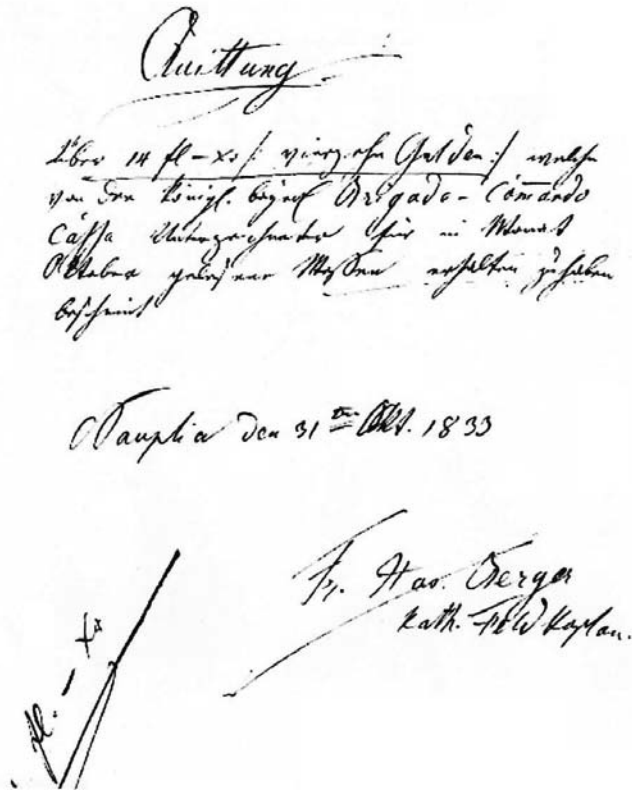 Quittung
Über 14 fl – xr /: vierzehn Gulden :/ welche
von der königl. bayer. Brigade-Commando
Cassa Unterzeichneter für in Monat
Oktober gelesene Messen erhalten zu haben
bescheint
Nauplia den 31ten Okt. 1833
Fr. Berger
kath. Feld Kaplan.
fl. – xr